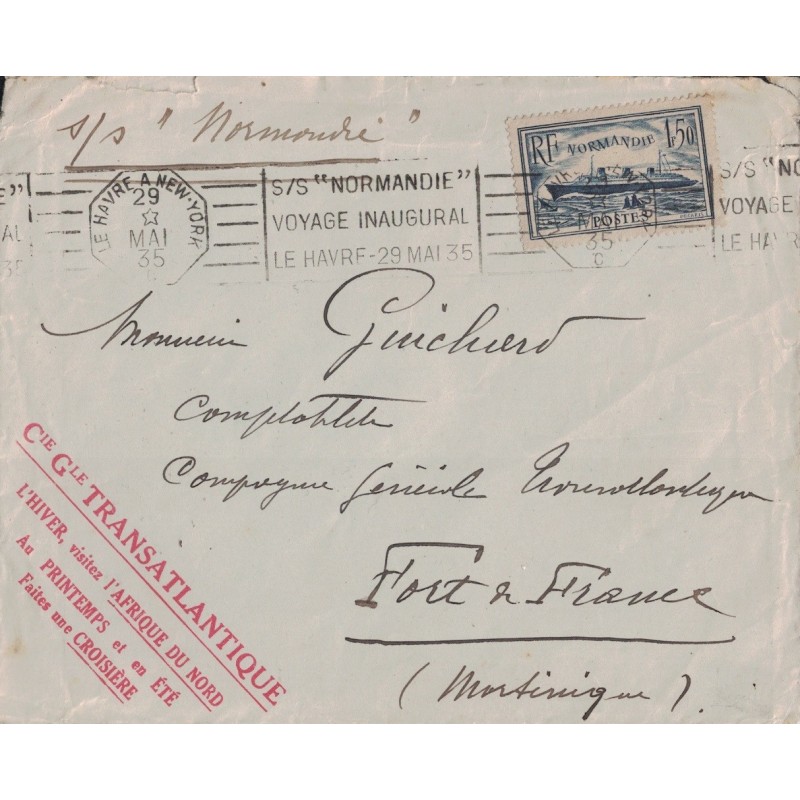 s/s "Normandie"
RF NORMANDIE 1F50
POSTES
LE HAVRE A NEW-YORK
29
MAI
35
C
S/S "NORMANDIE"
VOYAGE INAUGURAL
LE HAVRE-29 MAI 35
35
C
S/S "NO
VOYAGE
LE HAVR
E"
AL
35
Monsieur Guichard
Comptabilité
Compagnie Générale Transatlantique
Fort de France
(Martinique).
CIE GLE TRANSATLANTIQUE
L'HIVER, visitez l'AFRIQUE DU NORD
Au PRINTEMPS et en ÉTÉ
Faites une CROISIÈRE